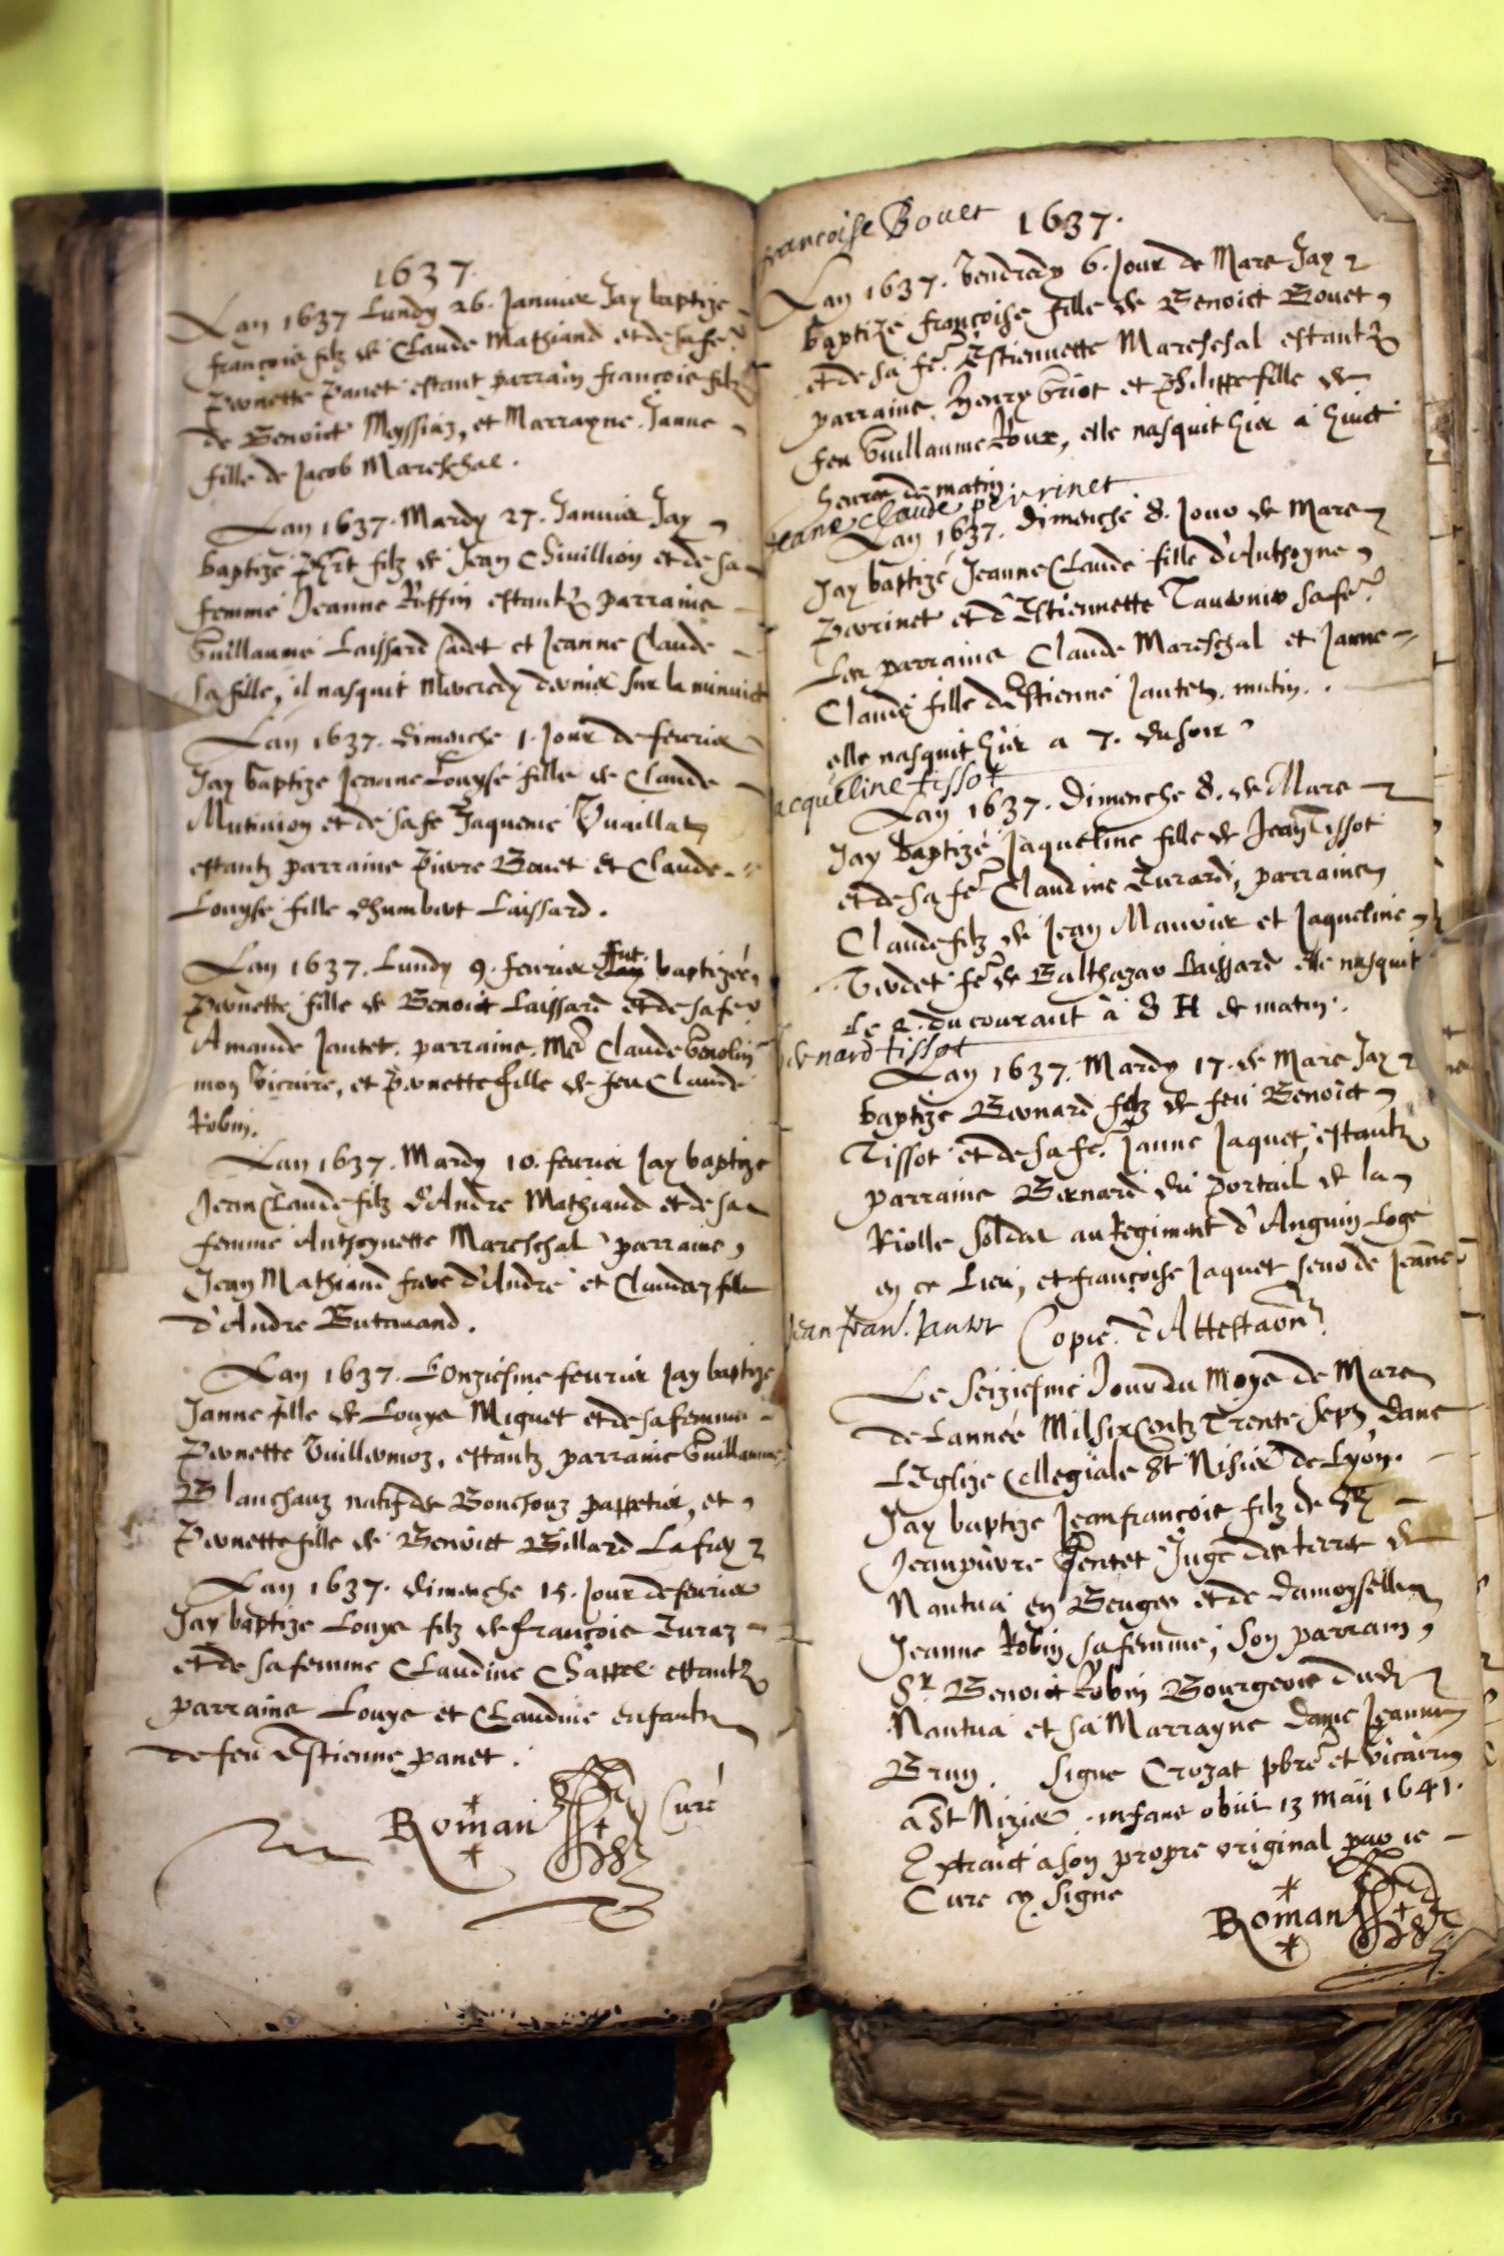 1637.
Lan 1637 Lundy 26. Januier Jay baptize
francois filz de Claude Mathiand et de sa fe.
Pernette Panet estant parrain francois filz
de Benoict Meyssiaz, et Marrayne Janne
fille de Jacob Mareschal.
Lan 1637. Mardy 27. Januier Jay
baptizé filz de Jean Chiuillion et de sa
femme Jeanne Ruffin estantz parrains
Guillaume Laissard Cadet et Jeanne Claude
sa fille, il nasquit Mercredy dernier sur la minuict
Lan 1637. dimenche 1. Jour de feurier
Jay baptize Jeanne Louyse fille de Claude
et de sa fe Jaquemie Vuaillat
estantz parrains Pierre Bouet et Claude
Louyse fille dhumbert Laissard.
Lan 1637. Lundy 9. feurier fut baptizée
Pernette fille de Benoict Laissard et de sa fe
Amande Jantet. parrains. Mre Claude
mon Vicaire, et Pernette fille de feu Claude
Robin.
Lan 1637. Mardy 10. feurier Jay baptize
Jean Claude filz d'Andre Mathiand et de sa
femme Anthoynette Mareschal parrains
Jean Mathiand frere d'Andre et Claudaz fille
d'Andre Butauand.
Lan 1637. L'Onziesme feurier Jay baptize
Janne fille de Louys Miguet et de sa femme
Pernette Vuillermoz, estantz parrains Guillaume
Blanchauz natif de Bouchouz pappetier, et
Pernette fille de Benoict Billard Lafray
Lan 1637. dimenche 15. Jour de feurier
Jay baptize Louys filz de françois Turaz
et de sa femme Claudine Chappel estantz
parrains Louys et Claudine enfantz
de feu Estienne panet.
Roman Curé
francoise Bouet 1637.
Lan 1637. Vendredy 6. Jour de Mars Jay
baptizé françoise fille de Benoict Bouet
et de sa fe. Estiennette Mareschal estantz
parrains. Henry Griot et Philippe fille de
feu Guillaume Roux, elle nasquit hier a huict
heures de matin.
Jeane Claude perrinet
Lan 1637. dimenche 8. Jour de Mars
Jay baptizé Jeanne Claude fille d'Anthoyne
Perrinet et d'Estiennette Tauernier sa fe.
Les parrains Claude Mareschal et Janne
Claude fille d'Estienne Jantet. mutin.
elle nasquit hier a 7. du soir
Jacqueline tissot
Lan 1637. Dimenche 8. de Mars
Jay baptizé Jaqueline fille de Jean Tissot
et de sa fe Claudine Turard, parrains
Claude filz de Jean Mauvier et Jaqueline
Verdet fe de Balthazar Laissard elle nasquit
le 2. du courant à 8 H de matin.
bernard tissot
Lan 1637. Mardy 17. de Mars Jay
baptize Bernard filz de feu Benoict
Tissot et de sa fe. Janne Jaquet, estantz
parrains Bernard du Portail de la
Riolle soldat au Regiment d'Anguin Logé
en ce Lieu, et françoise Jaquet seur de Jeanne
Jean fran. Jantet Copie d'Attestaon.
Le Seiziesme Jour du Moys de Mars
de Lannée Mil six Centz Trente Sept dans
LEglize Collegiale St Nisier de Lyon.
Jay baptize Jean francois filz de Sr
Jean pierre Jentet Juge des terres de
Nantua en Beugey et de damoyselle
Jeanne Robin sa femme, Son parrain
Sr Benoict Robin Bourgeois dud
Nantua et sa Marrayne dame Jeanne
Brun. Signe Crozat pbre et vicaire
a St Nizier. infans obiit 13 Maij 1641.
Extraict a son propre original par ie
Cure sy Signe
Roman